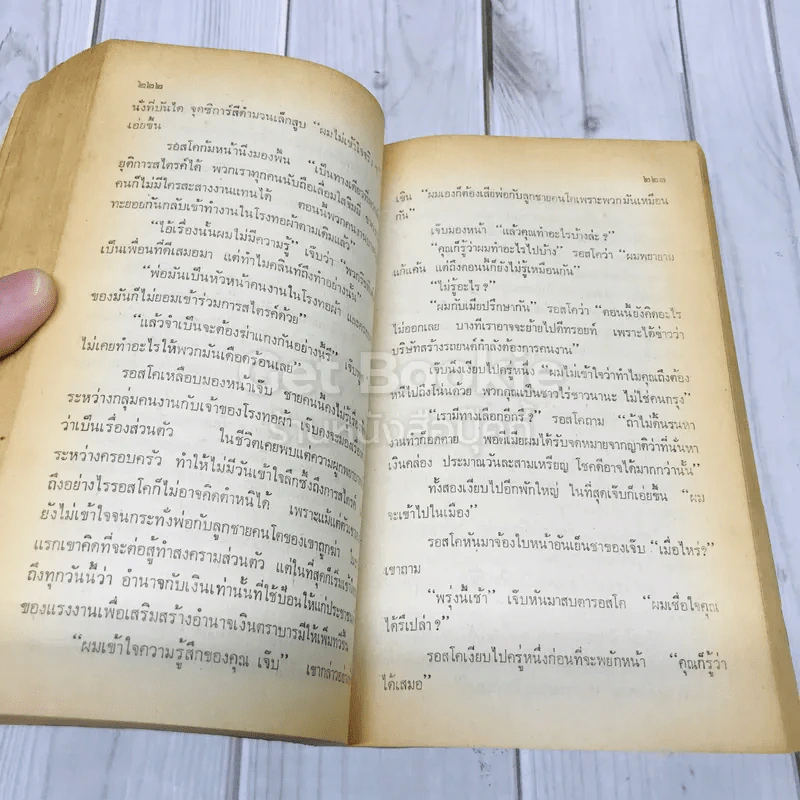 ๒๒๒
นั่งที่บันได จุดซิการ์สีดำมวนเล็กสูบ “ผมไม่เข้าใจจริง
เอ่ยขึ้น
รอสโคก้มหน้านิ่งมองพื้น “เป็นทางเดียวที่
ยุติการสไตรค์ได้ พวกเราทุกคนนับถือเลื่อมใสจิมมี่
คนก็ไม่มีใครสะสางงานแทนได้ ตอนนี้พวกคนงาน
ทะยอยกันกลับเข้าทำงานในโรงทอผ้าตามเดิมแล้ว”
“ไอ้เรื่องนั้นผมไม่มีความรู้” เจ็บว่า “พวก
เป็นเพื่อนที่ดีเสมอมา แต่ทำไมคลินท์ถึงทำอย่างนั้น”
“พ่อมันเป็นหัวหน้าคนงานในโรงทอผ้า และ
ของมันก็ไม่ยอมเข้าร่วมการสไตรค์ด้วย”
“แล้วจำเป็นจะต้องฆ่าแกงกันอย่างนี้รึ” เจ็บ
ไม่เคยทำอะไรให้พวกมันเดือดร้อนเลย”
รอสโคเหลือบมองหน้าเจ็บ ชายคนนี้คงไม่รู้
ระหว่างกลุ่มคนงานกับเจ้าของโรงทอผ้า เจ็บคงจะมอง
ว่าเป็นเรื่องส่วนตัว ในชีวิตเคยพบแต่ความผูกพยาบาท
ระหว่างครอบครัว ทำให้ไม่มีวันเข้าใจลึกซึ้งถึงการสไตรค์
ถึงอย่างไรรอสโคก็ไม่อาจคิดตำหนิได้ เพราะแม้แต่ตัว
ยังไม่เข้าใจจนกระทั่งพ่อกับลูกชายคนโตของเขาถูกฆ่า
แรกเขาคิดที่จะต่อสู้ทำสงครามส่วนตัว แต่ในที่สุดก็เริ่ม
ถึงทุกวันนี้ว่า อำนาจกับเงินเท่านั้นที่ใช้ป้อนให้แก่ประชาชน
ของแรงงานเพื่อเสริมสร้างอำนาจเงินตราบารมีให้เพิ่มทวีขึ้น
“ผมเข้าใจความรู้สึกของคุณ เจ็บ” เขากล่าว
๒๒๓
เซิน “ผมเองก็ต้องเสียพ่อกับลูกชายคนโตเพราะพวกมันเหมือน
กัน”
เจ็บมองหน้า “แล้วคุณทำอะไรบ้างล่ะ?”
“คุณก็รู้ว่าผมทำอะไรไปบ้าง” รอสโคว่า “ผมพยายาม
แก้แค้น แต่ถึงตอนนี้ก็ยังไม่รู้เหมือนกัน”
“ไม่รู้อะไร?”
“ผมกับเมียปรึกษากัน” รอสโคว่า “ตอนนี้ยังคิดอะไร
ไม่ออกเลย บางทีเราอาจจะย้ายไปดีทรอยท์ เพราะได้ข่าวว่า
บริษัทสร้างรถยนต์กำลังต้องการคนงาน”
เจ็บนิ่งเงียบไปครู่หนึ่ง “ผมไม่เข้าใจว่าทำไมคุณถึงต้อง
หนีไปถึงโน่นด้วย พวกคุณเป็นชาวไร่ชาวนานะ ไม่ใช่คนกรุง”
“เรามีทางเลือกอีกรึ?” รอสโคถาม “ถ้าไม่ดิ้นรนหา
งานทำก็อดตาย พอดีเมียผมได้รับจดหมายจากญาติว่าที่นั่นหา
เงินคล่อง ประมาณวันละสามเหรียญ โชคดีอาจได้มากกว่านั้น”
ทั้งสองเงียบไปอีกพักใหญ่ ในที่สุดเจ็บก็เอ่ยขึ้น “ผม
จะเข้าไปในเมือง”
รอสโคหันมาจ้องใบหน้าอันเย็นชาของเจ็บ “เมื่อไหร่?”
เขาถาม
“พรุ่งนี้เช้า” เจ็บหันมาสบตารอสโค “ผมเชื่อใจคุณ
ได้รึเปล่า?”
รอสโคเงียบไปครู่หนึ่งก่อนที่จะพยักหน้า “คุณก็รู้ว่า
ได้เสมอ”
Get Bookie
ร้านหนังสือมุสภี